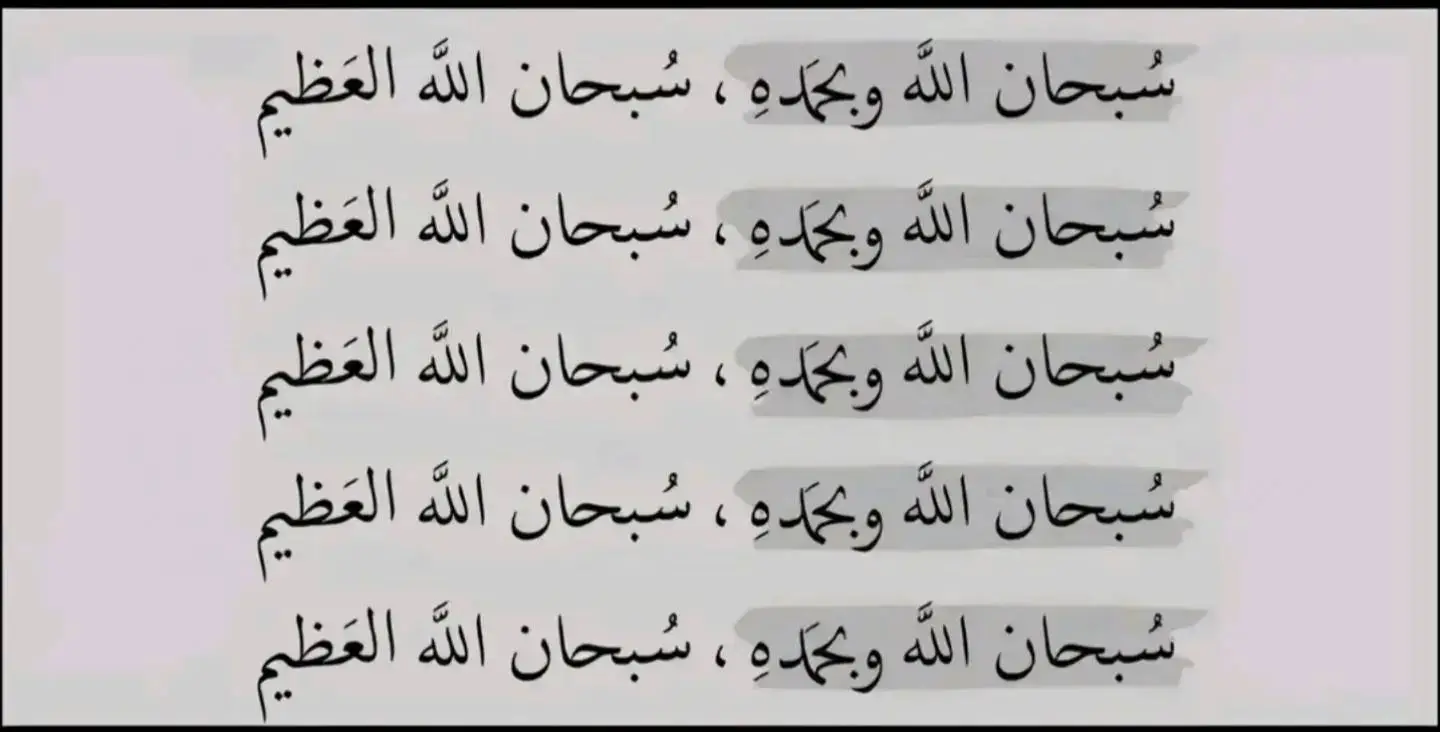 سُبحان اللَّه وبحمَدهِ ، سُبحان اللَّه العَظيم
سُبحان اللَّه وبحمَدهِ ، سُبحان اللَّه العَظيم
سُبحان اللَّه وبحمَدهِ ، سُبحان اللَّه العَظيم
سُبحان اللَّه وبحمَدهِ ، سُبحان اللَّه العَظيم
سُبحان اللَّه وبحمَدهِ ، سُبحان اللَّه العَظيم